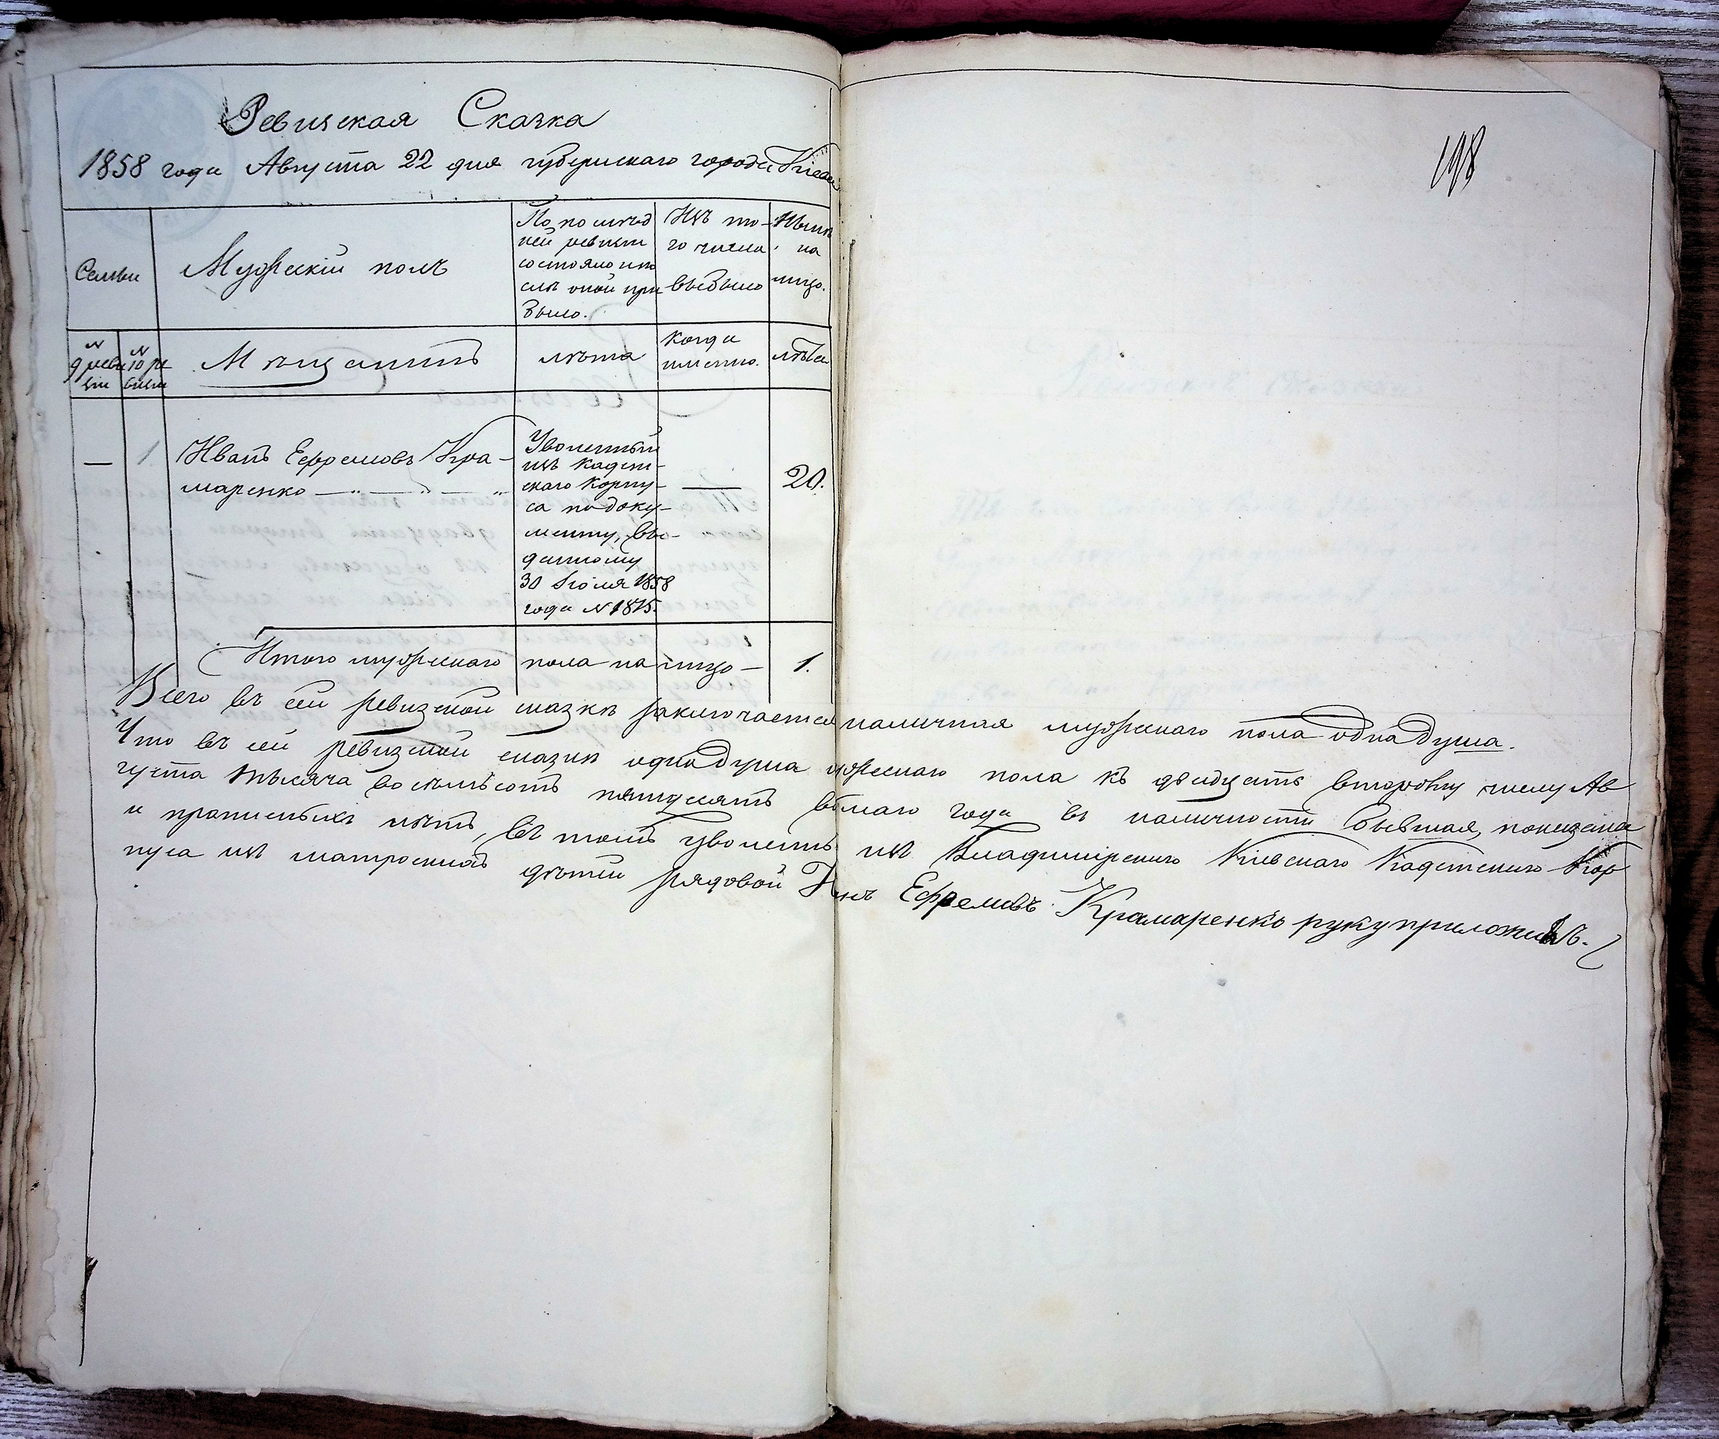 Ревизская Сказка
1858 года Августа 22 дня губернскаго города Кіева
198
Семьи
Мужескій полъ
По послѣд
ней ревизіи
состояло и по
слѣ оной при
было.
Изъ то-
го числа
выбыло
Нынѣ
на
лицо.
№
9 реви
зіи
№
10 ре
визіи
Мѣщанинъ
лѣта
Когда
именно.
лѣта
— 1
Иванъ Ефремовъ Кра-
маренко
Уволенный
изъ Кадет-
скаго Корпу-
са по доку-
менту, вы-
данному
30 Іюля 1858
года № 1815.
—
20.
Итого мужескаго пола на лицо — 1.
Всего въ сей ревизской сказкѣ заключается наличная мужескаго пола одна душа.
Что въ сей ревизской сказкѣ одна душа мужескаго пола къ двадцать второму числу Ав
густа тысяча восемьсотъ пятьдесятъ восьмаго года въ наличности бывшая, показана
и прописныхъ нѣтъ, въ томъ уволенный изъ Владимірскаго Кіевскаго Кадетскаго Кор
пуса изъ матросскихъ дѣтей рядовой Иванъ Ефремовъ Крамаренко руку приложилъ.